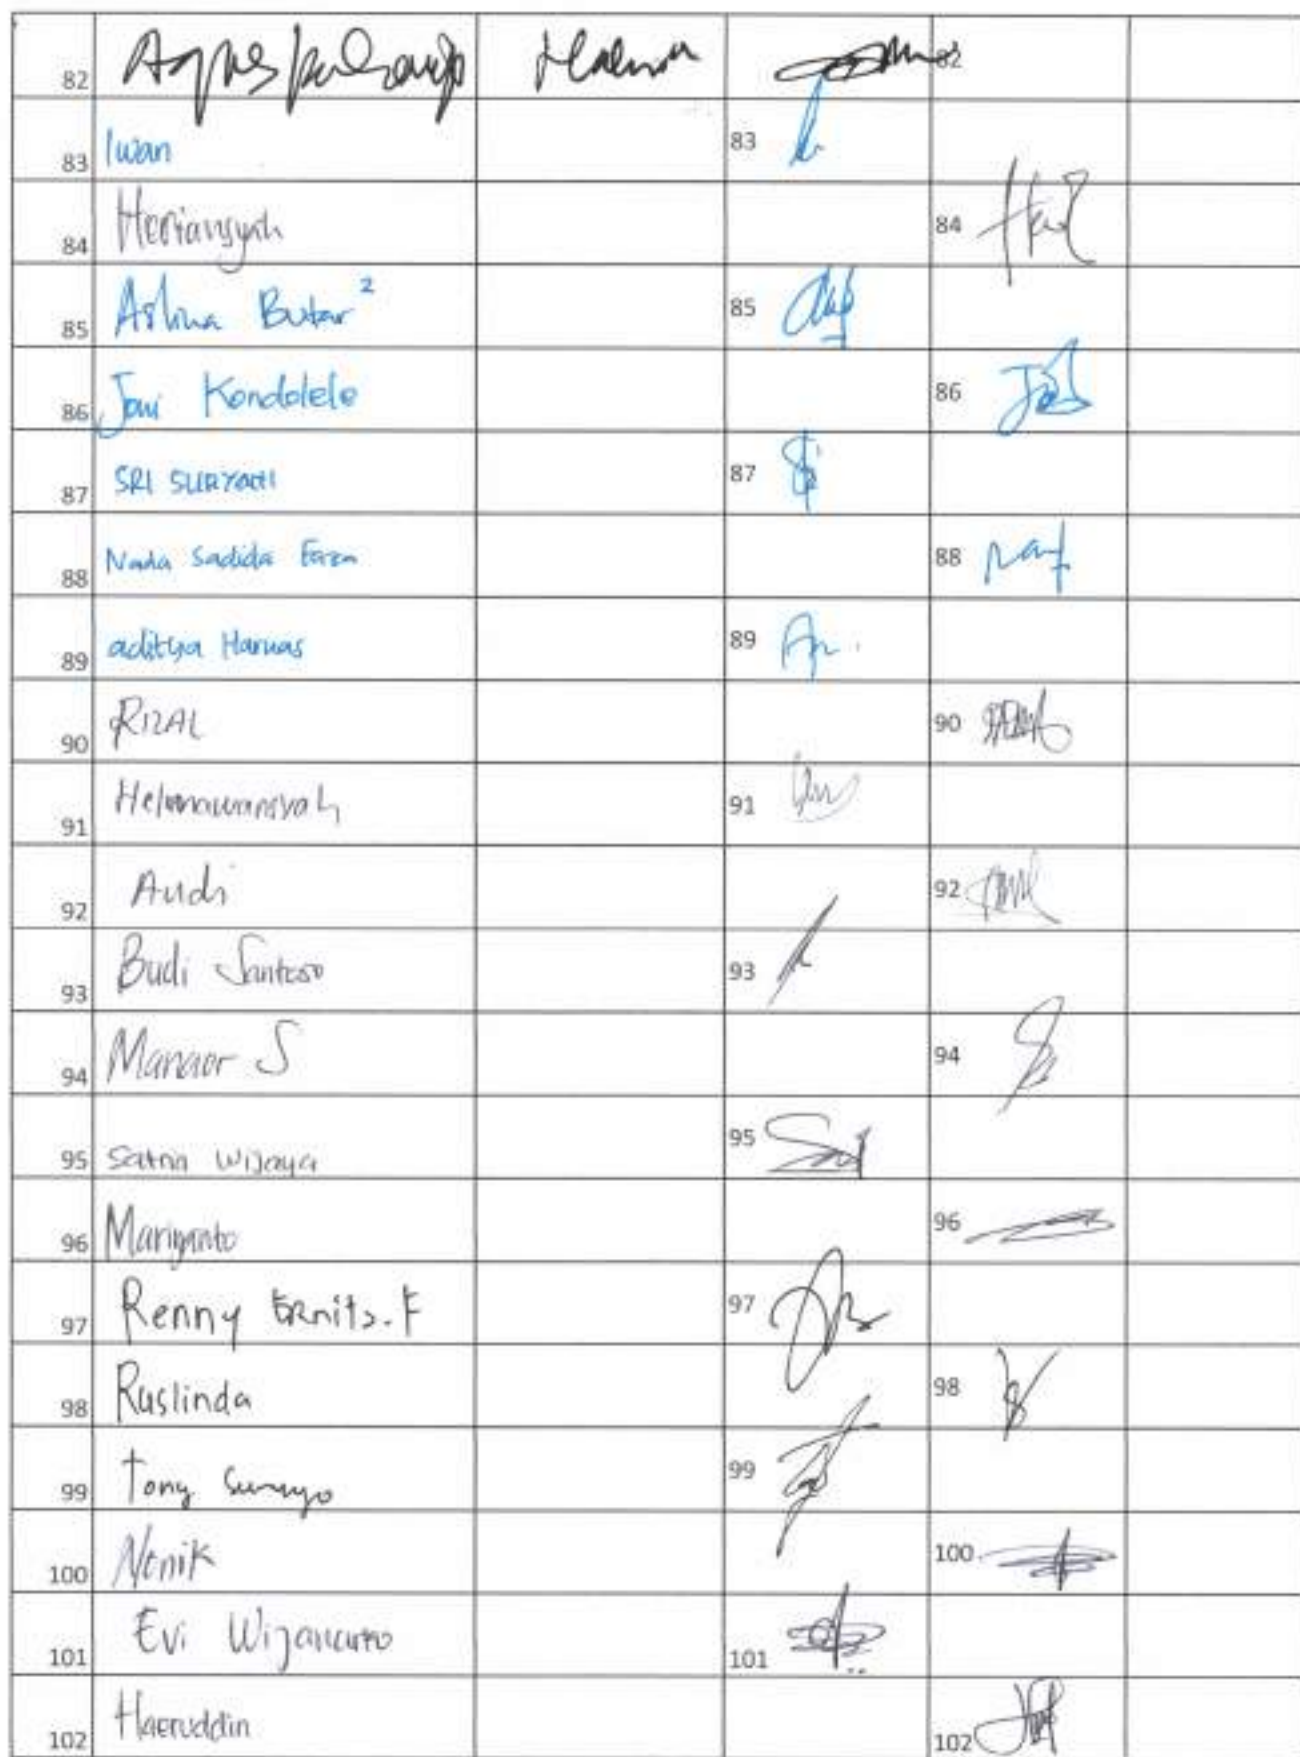 82 Agnes 82
83 Iwan 83
84 Heriansyah 84
85 Butar ² 85
86 Joni Kondolele 86
87 SRI SURYATI 87
88 Nada Sadida 88
89 aditya Harnas 89
90 RIZAL 90
91 Helmawansyah 91
92 Andi 92
93 Budi Santoso 93
94 Manaor S 94
95 Satria Wijaya 95
96 Mariyanto 96
97 Renny Ernita. F 97
98 Ruslinda 98
99 Tony 99
100 Nenik 100
101 Evi Wijanarko 101
102 Haeruddin 102